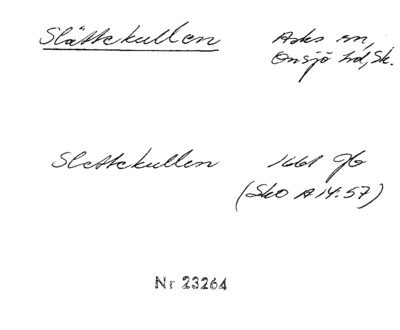 Slättekullen Asks sn,
Onsjö hd, Sk.
Slettekullen 1661 Jb
(Sko A 14:57)
Nr 23264